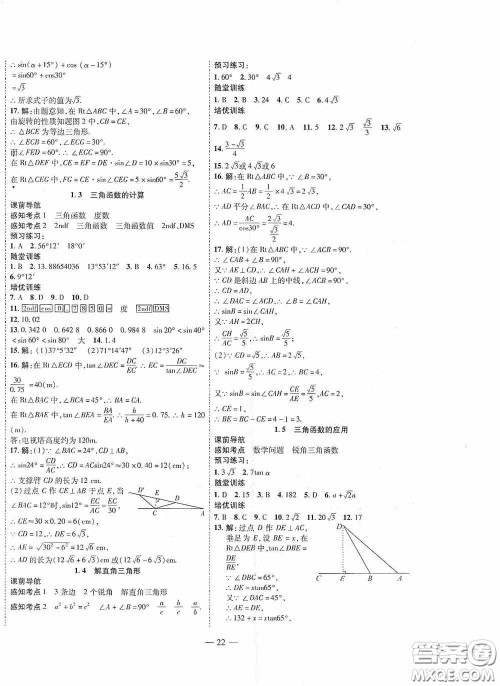 ∴ sin(α+15°)+cos(α-15°)
=sin60°+cos30°
=√3
∴ 所求式子的值为√3.
17. 解:由题意知,在 Rt△ABC 中,∠A=30°,
由旋转的性质知题图 2 中,CB=CE,
∴ △BCE 为等边三角形.
∴ ∠ECB=60°,∠ECG=30°.
而∠FCE=90°.
在 Rt△DEF 中,EF=DE·sin∠D=10×sin30°=5
在 Rt△CEG 中,FG=CE·sin∠FEC=5×sin60°=5√3/2.
1.3 三角函数的计算
课前导航
感知考点 1 三角函数 度数
感知考点 2 2ndf 三角函数 三角函数值 2ndf,DMS
预习练习:
1. A 2. 56°12′ 18°0′
随堂训练
1. B 2. 13.88654036 13°53′12″ 3. B 4. 16 5. 16.5
6. 9°12′
培优训练
7. A 8. D 9. D 10. D
12. 10.02
13. 0.342 0 0.642 8 0.866 0 0.984 8 sin20°<sin40°
<sin60°<sin80° 大 14. 1.2
15. 解:(1)37°5′32″ (2)71°14′47″ (3)12°13′14″
16. 解:在 Rt△DEC 中,tan∠DEC=DC/EC ∴ EC=DC/tan∠DEC=
30/0.75=40(m).
在 Rt△BAC 中,∠BCA=45°,∴ AB=AC.
在 Rt△BEA 中,tan∠BEA=BA/EA ∴ h/(h+40)=
0.75,∴ h=120.
答:电视塔高度约为 120m.
17. 解:(1)∵ ∠BAC=24°,CD⊥AB,
∴ sin24°=CD/AC,∴ CD=ACsin24°≈12(m);
∴ 支撑臂 CD 的长为 12cm
(2)过点 C 作 CE⊥AB 于点 E,当
∠BAC=12°时,sin12°=EC/AC=EC/30,
∴ CE≈30×0.20=6(cm).
∵ CD=12,∴ DE=6√3
∴ AE=√(30²-6²)=12√6
∴ AD 的长为(12√6+6√3)cm 或(12√6-6√3)cm.
1.4 解直角三角形
课前导航
感知考点 1 3 条边 2 个锐角 解直角三角形
感知考点 2 a²+b²=c² ∠A+∠B=90° a/c b/c a/b
预习练习:
1. 60° 2. 30° 4√3 4
随堂训练
1. B 2. B 3. 24 4. C 5. C 6. 4√3
培优训练
7. D 8. C 9. C 10. A 11. 5 12. √3/3 13. √6
14. (3-√3)/4
15. 2√3 或 4√3 或 6
16. 解:在 Rt△ABC 中,∵ ∠B=30°,
∴ AC=1/2 AB=1/2×4√3=2√3
∵ AD 平分∠BAC,∴ 在 Rt△ACD 中,∠CAD=30°,
∴ AD=AC/cos30°=2√3/(√3/2)=4.
17. 解:(1)在 Rt△ABC 中,∠ACB=90°,
∴ ∠CAB+∠B=90°.
又∵ AE⊥CD,∴ ∠CAH+∠ACH=90°.
又∵ CD 是斜边 AB 上的中线,∴ CD=AD.
∴ ∠DAC=∠ACD,∴ ∠CAH=∠B.
∴ sinB=sin∠CAH.
又∵ AH=2CH,
∴ CH/AC=√5/5,∴ sinB=√5/5;
(2)∵ CD=√5,∴ AB=2√5.
又∵ sinB=√5/5,∴ AC=2,BC=4.
∵ sinB=sin∠CAH=CE/AE=√5/5,
∴ CE=1.
∴ BE=BC-CE=4-1=3.
1.5 三角函数的应用
课前导航
感知考点 数学问题 锐角三角函数
预习练习:
1. 3√3 2. 7tanα
随堂训练
1. D 2. 15 3. B 4. 182 5. D 6. a+√2a
培优训练
7. B 8. B 9. C 10. C 11. 20√3 12. 17
13. 解:过点 D 作 DE⊥AC,
垂足为 E,设 BE=x,在
Rt△DEB 中,tan∠DBE=
DE/BE,
∵ ∠DBC=65°,
∴ DE=xtan65°.
又∵ ∠DAC=45°,
∴ AE=DE.
∴ 132+x=xtan65°,
D
C E B A
— 22 —